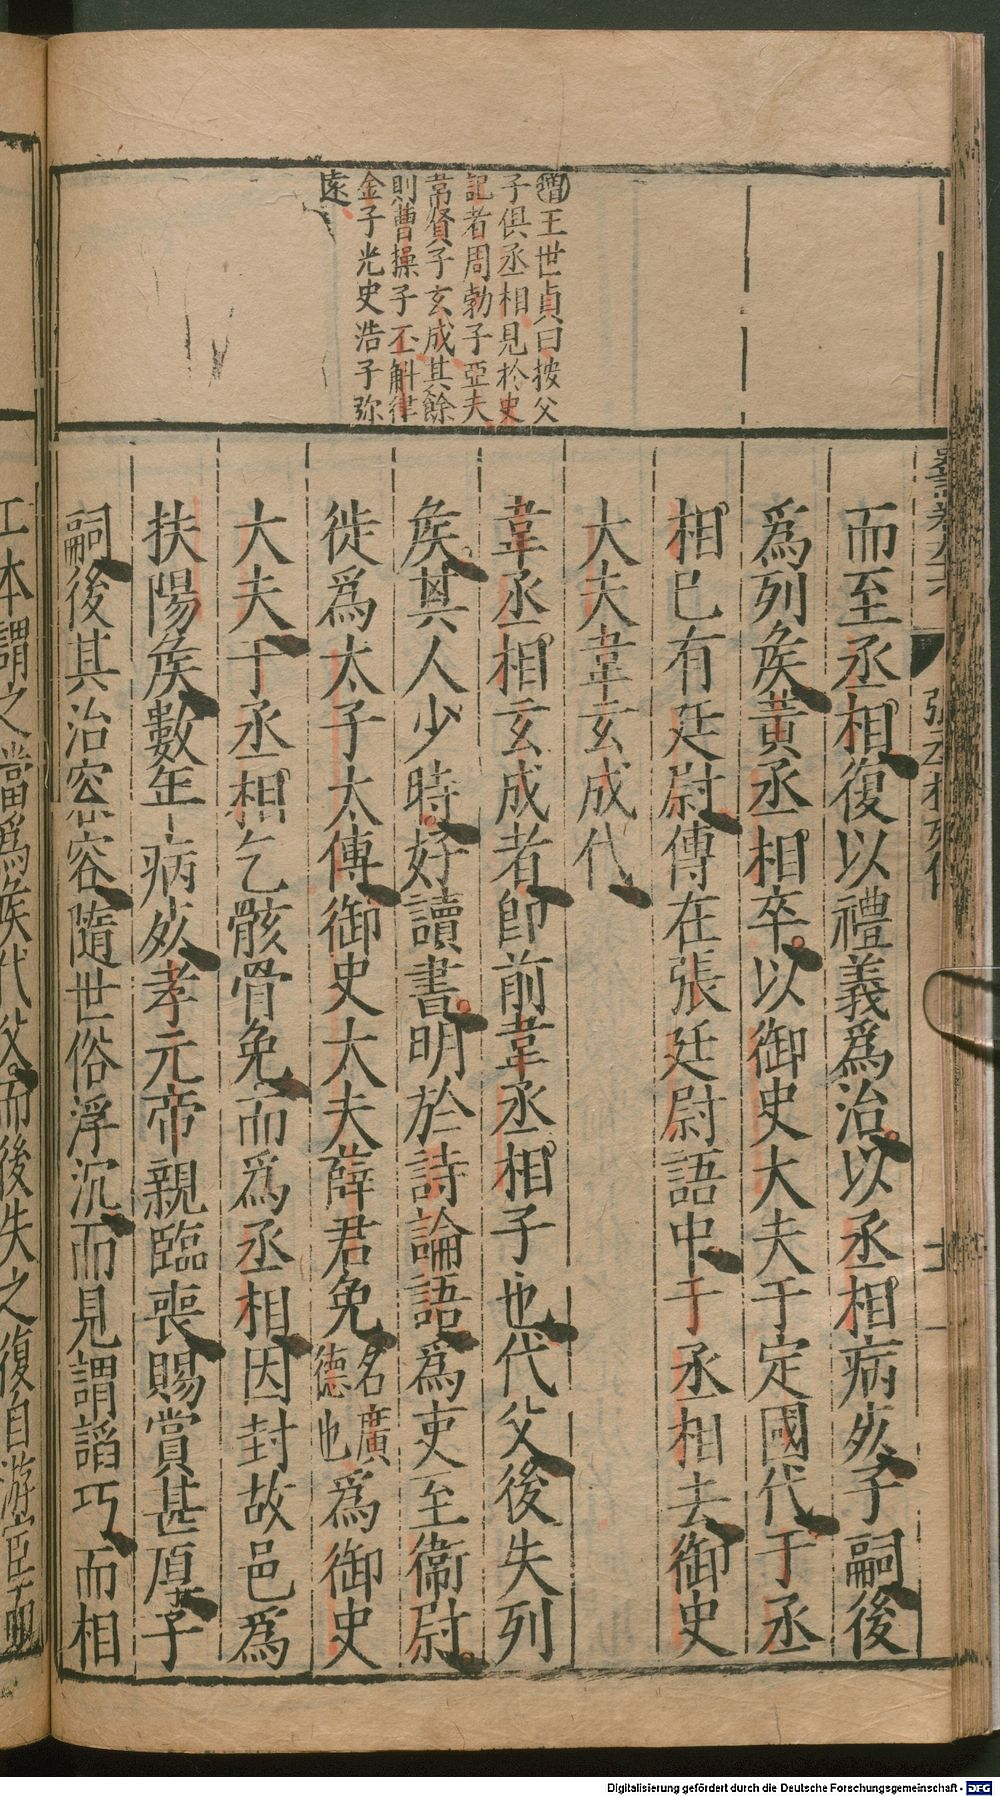 ㊉王世貞曰按父
子俱丞相見於史
記者周勃子亞夫
韋賢子玄成其餘
則曹操子丕斛律
金子光史浩子弥
遠
而至丞相復以禮義爲治以丞相病死子嗣後
爲列矦黃丞相卒以御史大夫于定國代于丞
相已有廷尉傳在張廷尉語中于丞相去御史
大夫韋玄成代
韋丞相玄成者即前韋丞相子也代父後失列
矦其人少時好讀書明於詩論語爲吏至衞尉
徙爲太子太傅御史大夫薛君免名廣德也爲御史
大夫于丞相乞骸骨免而爲丞相因封故邑爲
扶陽矦數年病死孝元帝親臨喪賜賞甚厚子
嗣後其治容容隨世俗浮沉而見謂諂巧而相
工本謂之當爲矦代父而後失之復自游宦而
Digitalisierung gefördert durch die Deutsche Forschungsgemeinschaft - DFG